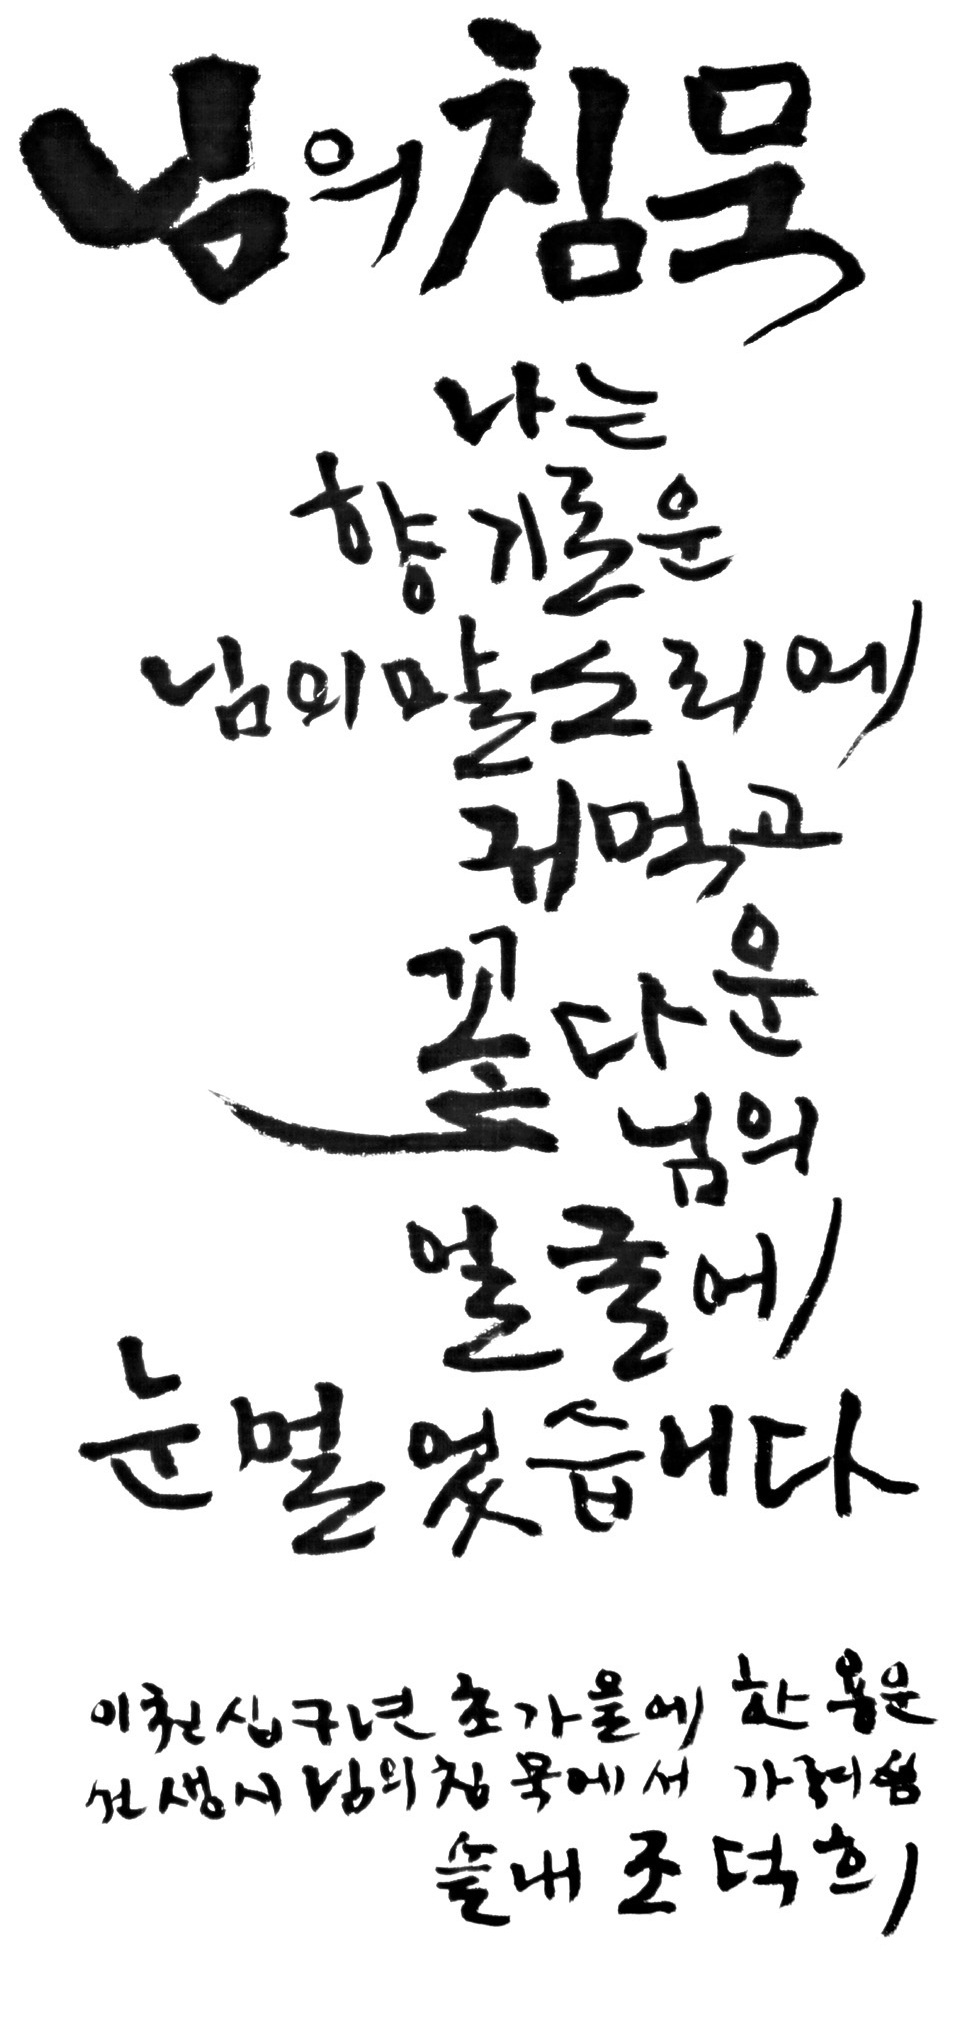 님의침묵
나는
향기로운
님의말소리에
귀먹고
꽃다운
님의
얼굴에
눈멀었습니다
이천십구년 초가을에 한용운
선생시 님의침묵에서 가려씀
슬내 조덕희